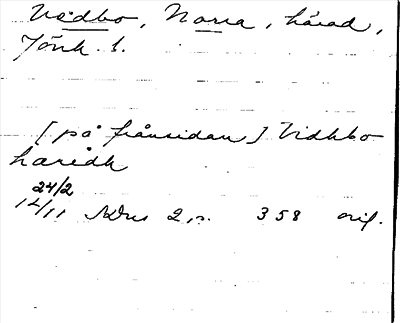 Vedbo, Norra, härad,
Jönk. l.
[på frånsidan] Vidhbo
haridh
24/2
1411 NDns 2, s. 358 orig.